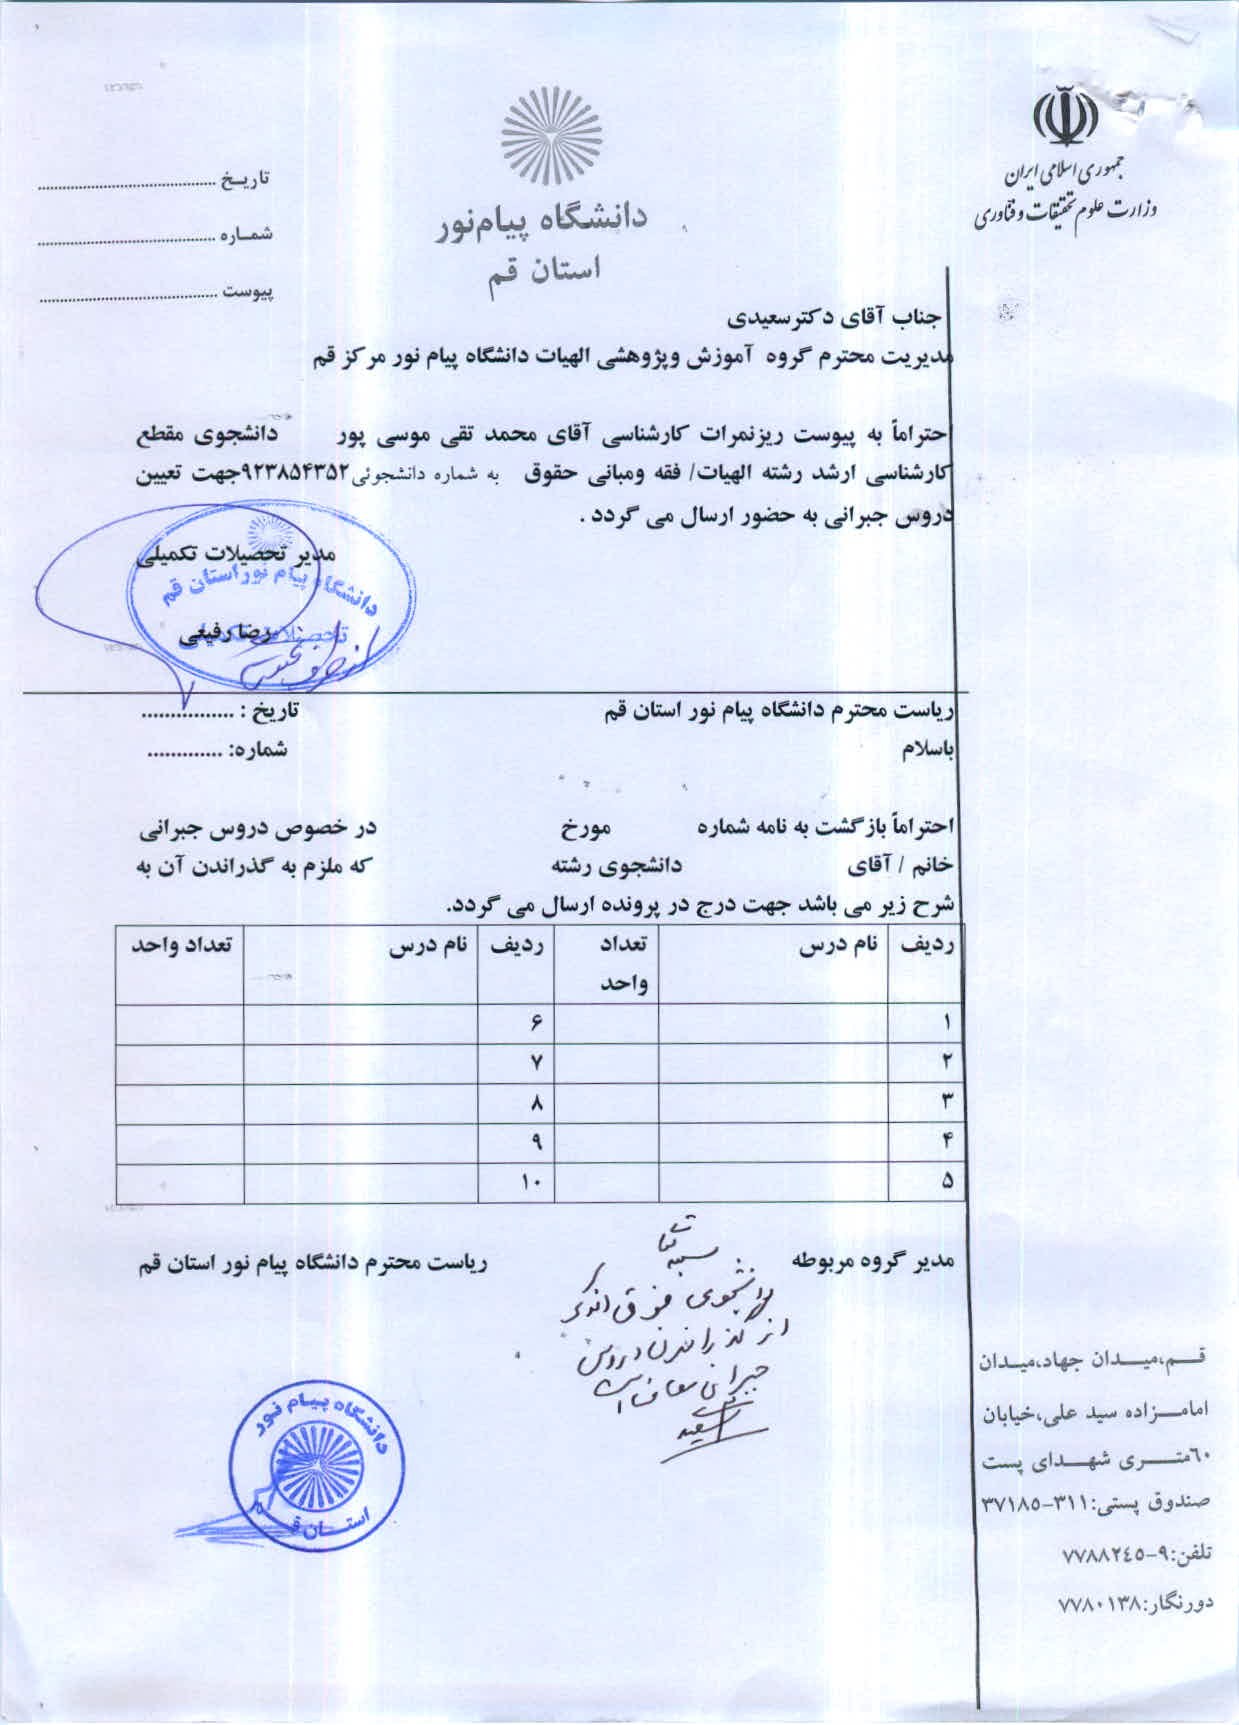 جمهوری اسلامی ایران
وزارت علوم تحقیقات و فناوری
دانشگاه پیام‌نور
استان قم
تاریـخ ............................................
شمـاره ............................................
پیوست ............................................
جناب آقای دکترسعیدی
مدیریت محترم گروه آموزش وپژوهشی الهیات دانشگاه پیام نور مرکز قم
احتراماً به پیوست ریزنمرات کارشناسی آقای محمد تقی موسی پور دانشجوی مقطع
کارشناسی ارشد رشته الهیات/ فقه ومبانی حقوق به شماره دانشجوئی ۹۲۳۸۵۴۳۵۲جهت تعیین
دروس جبرانی به حضور ارسال می گردد .
مدیر تحصیلات تکمیلی
دانشگاه پیام نور استان قم
تحصیلات تکمیلی
رضا رفیعی
از طرف
ریاست محترم دانشگاه پیام نور استان قم
تاریخ : ................
باسلام
شماره: .............
احتراماً بازگشت به نامه شماره مورخ در خصوص دروس جبرانی
خانم / آقای دانشجوی رشته که ملزم به گذراندن آن به
شرح زیر می باشد جهت درج در پرونده ارسال می گردد.
ردیف نام درس تعداد واحد ردیف نام درس تعداد واحد
۱ ۶
۲ ۷
۳ ۸
۴ ۹
۵ ۱۰
مدیر گروه مربوطه
ریاست محترم دانشگاه پیام نور استان قم
دانشجوی فوق الذکر
از گذراندن دروس
جبرانی معاف است
سعیدی
دانشگاه پیـام نور
استــان قــم
قـــم،میــدان جهاد،میـدان
امامـــزاده سید علی،خیابان
٦٠متـــری شهــدای پست
صندوق پستی:۳۱۱-۳۷۱۸۵
تلفن:۹-۷۷۸۸۲٤٥
دورنگار:۷۷۸۰۱۳۸